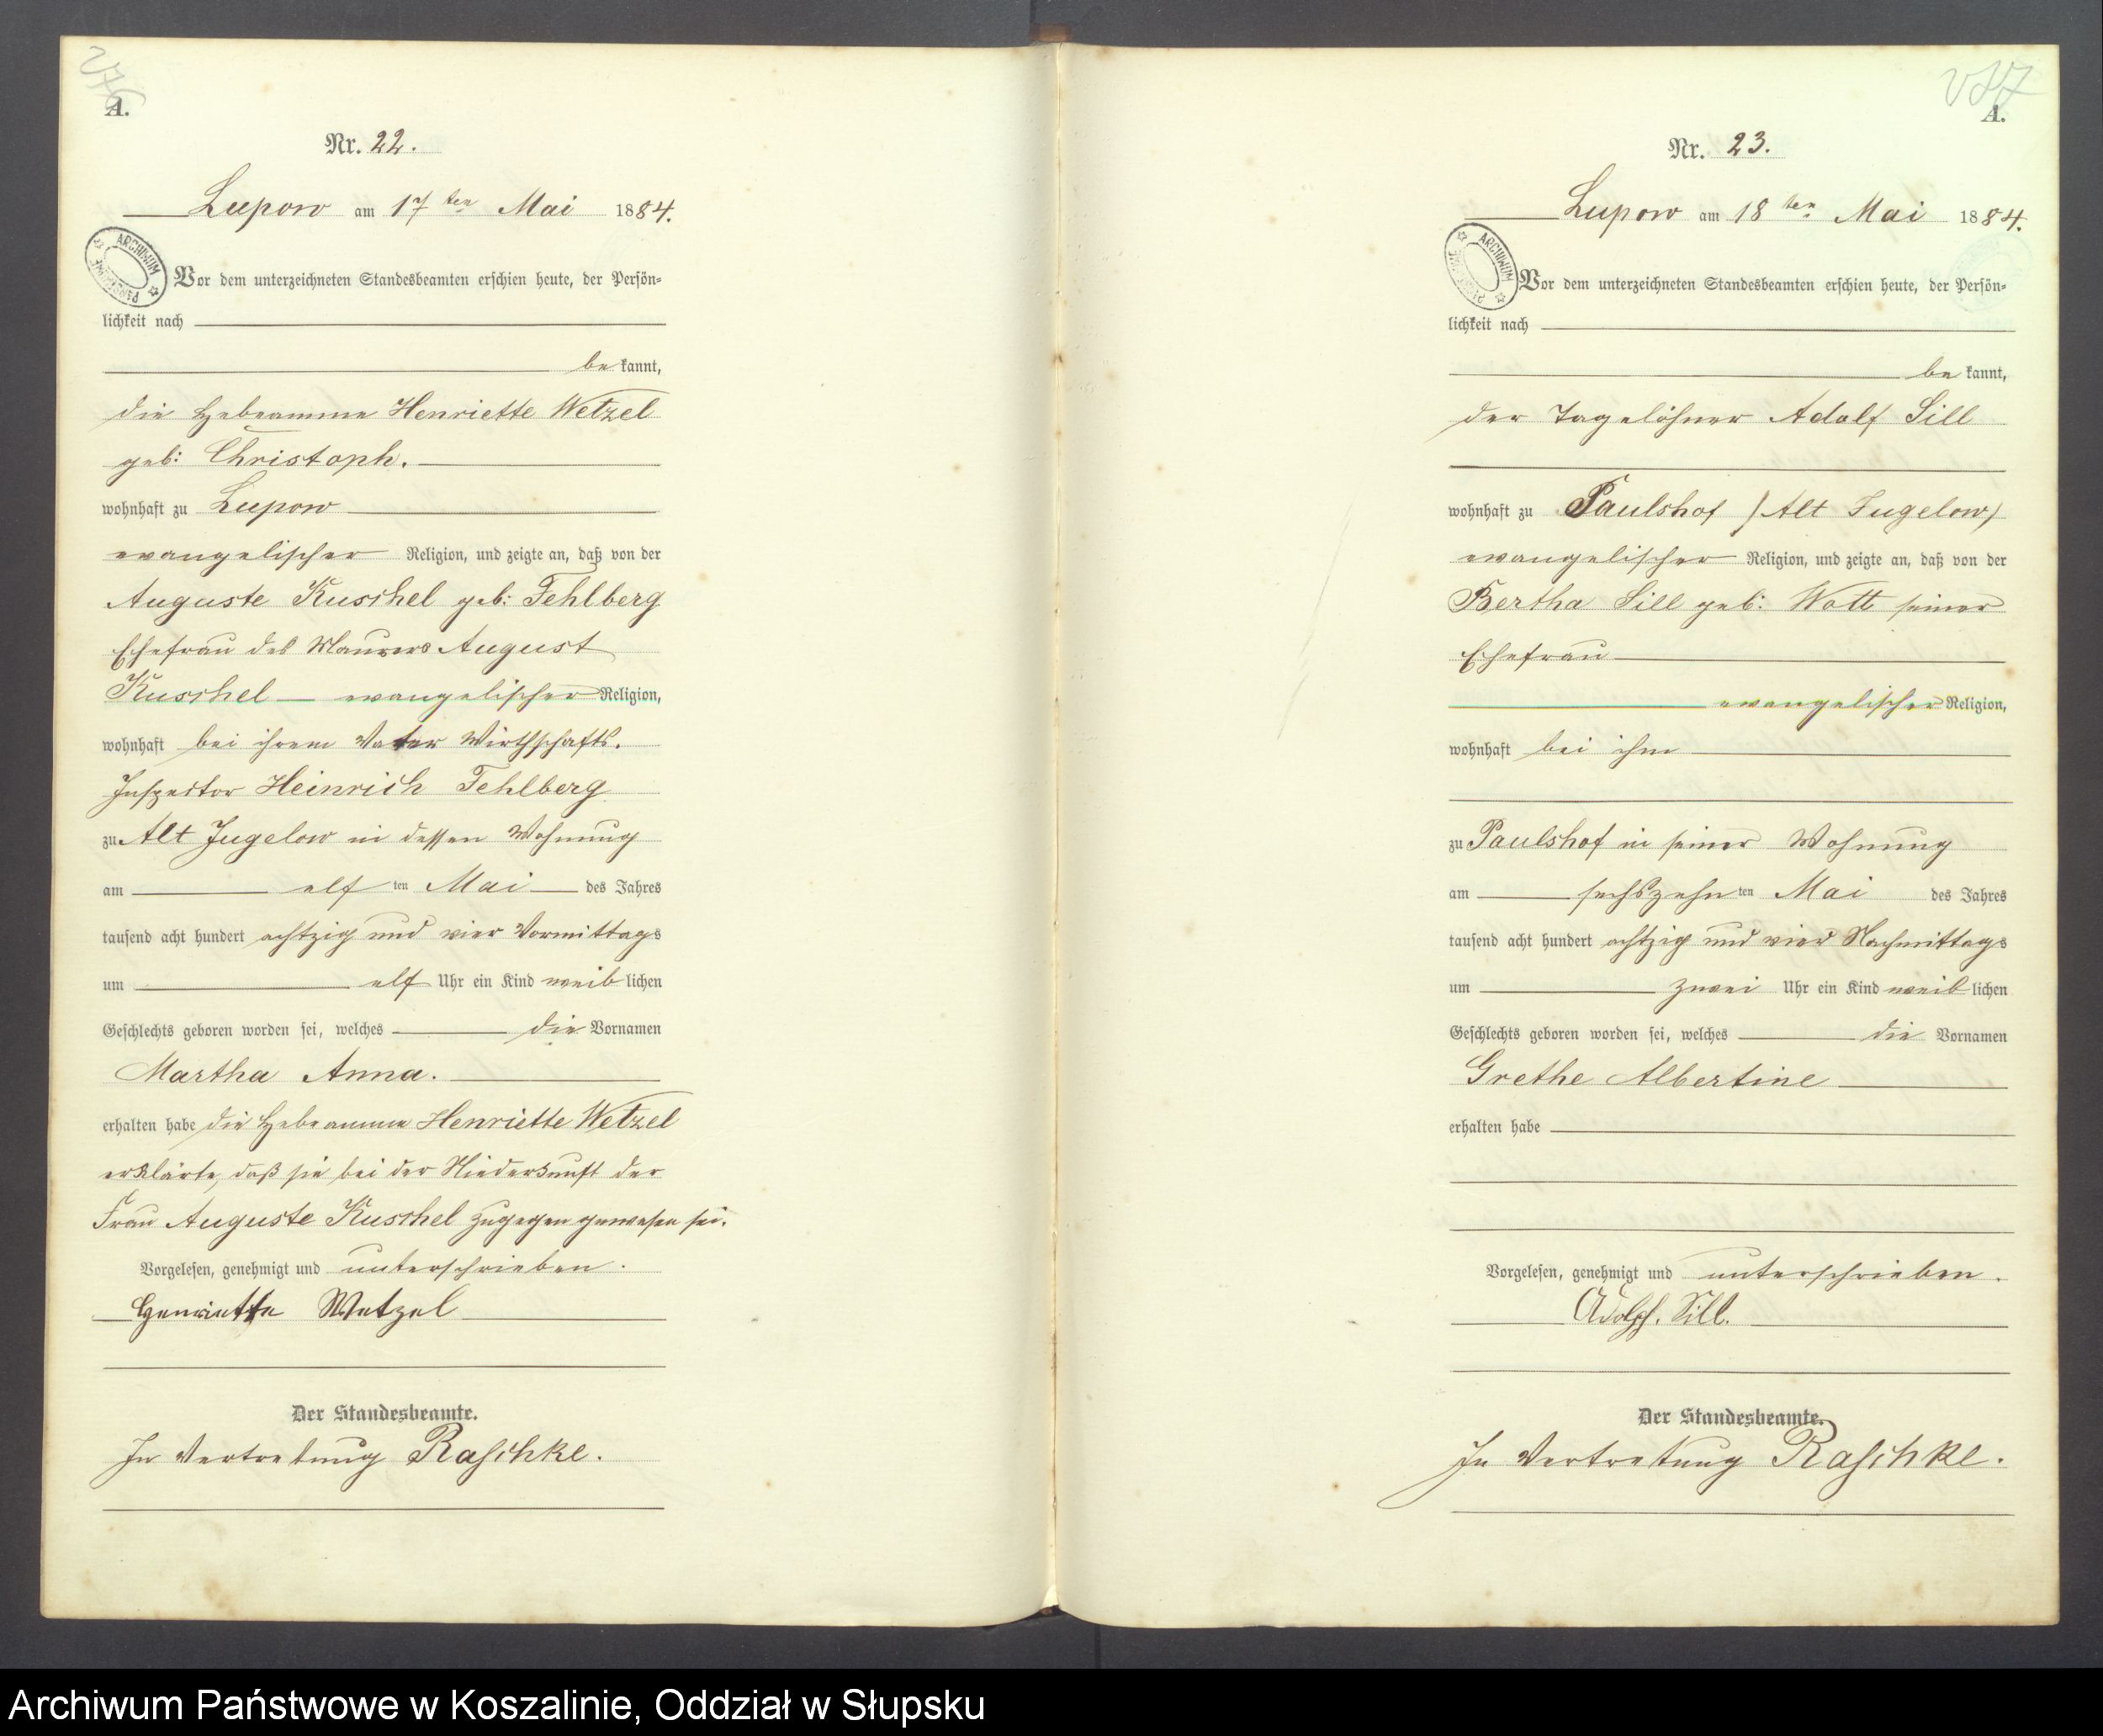 A.
Nr. 22.
Lupow am 17ten Mai 1884.
ARCHIWUM
Vor dem unterzeichneten Standesbeamten erschien heute, der Persön-
lichkeit nach
be kannt,
die Hebeamme Henriette Wetzel
geb: Christoph.
wohnhaft zu Lupow
evangelischer Religion, und zeigte an, daß von der
Auguste Kuschel geb: Fehlberg
Ehefrau des Maurers August
Kuschel — evangelischer Religion,
wohnhaft bei ihrem Vater Wirthschafts-
Inspector Heinrich Fehlberg
zu Alt Jugelow in dessen Wohnung
am elf ten Mai des Jahres
tausend acht hundert achtzig und vier Vormittags
um elf Uhr ein Kind weib lichen
Geschlechts geboren worden sei, welches die Vornamen
Martha Anna.
erhalten habe die Hebeamme Henriette Wetzel
erklärte, daß sie bei der Niederkunft der
Frau Auguste Kuschel zugegen gewesen sei.
Vorgelesen, genehmigt und unterschrieben.
Henriette Wetzel
Der Standesbeamte.
In Vertretung Raschke.
A.
Nr. 23.
Lupow am 18ten Mai 1884.
ARCHIWUM
Vor dem unterzeichneten Standesbeamten erschien heute, der Persön-
lichkeit nach
be kannt,
der Tagelöhner Adolf Sill
wohnhaft zu Paulshof /Alt Jugelow/
evangelischer Religion, und zeigte an, daß von der
Bertha Sill geb: Wott seiner
Ehefrau
evangelischer Religion,
wohnhaft bei ihm
zu Paulshof in seiner Wohnung
am sechszehn ten Mai des Jahres
tausend acht hundert achtzig und vier Nachmittags
um zwei Uhr ein Kind weib lichen
Geschlechts geboren worden sei, welches die Vornamen
Grethe Albertine
erhalten habe
Vorgelesen, genehmigt und unterschrieben.
Adolph. Sill.
Der Standesbeamte.
In Vertretung Raschke.
Archiwum Państwowe w Koszalinie, Oddział w Słupsku